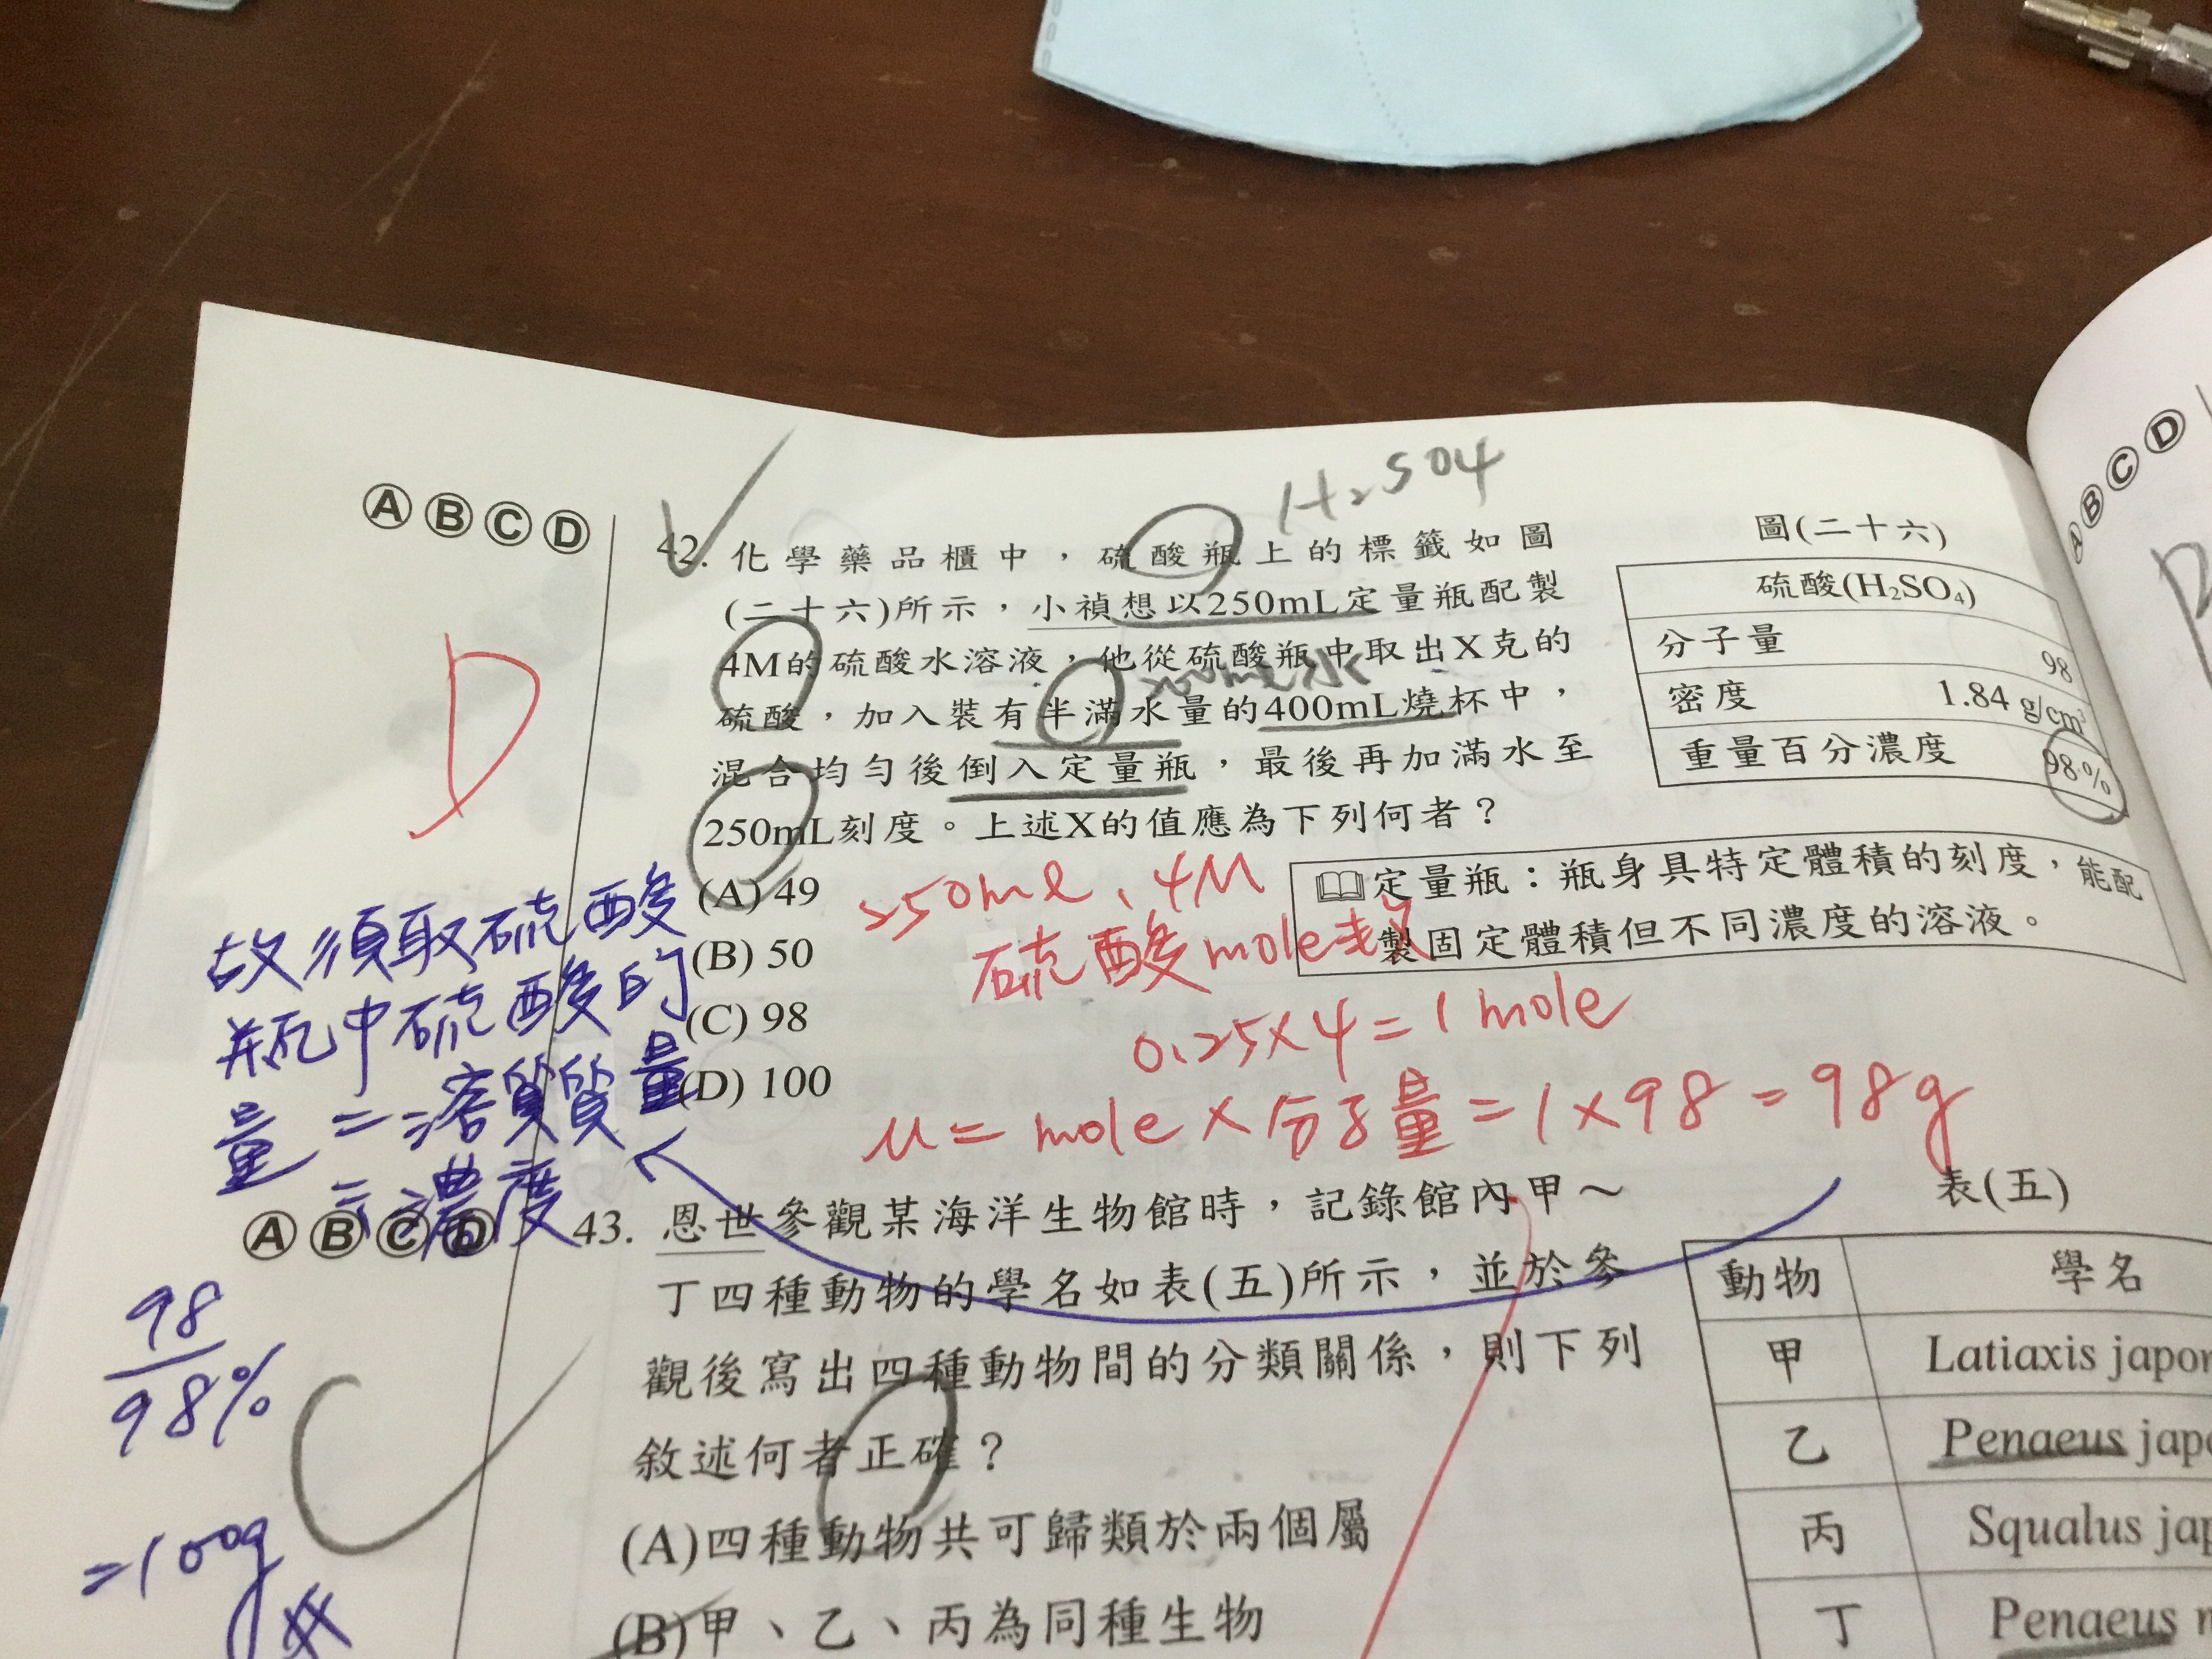 H₂SO4
Ⓐ Ⓑ Ⓒ Ⓓ
42. 化學藥品櫃中，硫酸瓶上的標籤如圖
(二十六)所示，小禎想以250mL定量瓶配製
4M的硫酸水溶液，他從硫酸瓶中取出X克的
硫酸，加入裝有半滿水量的400mL燒杯中，
混合均勻後倒入定量瓶，最後再加滿水至
250mL刻度。上述X的值應為下列何者？
(A) 49
(B) 50
(C) 98
(D) 100
圖(二十六)
硫酸(H₂SO₄)
分子量 98
密度 1.84 g/cm³
重量百分濃度 98%
定量瓶：瓶身具特定體積的刻度，能配
製固定體積但不同濃度的溶液。
D
200ml水
250ml、4M
硫酸mole数
0.25×4=1 mole
M = mole × 分子量 = 1×98 = 98g
故須取硫酸
瓶中硫酸的
量=溶質質量
÷濃度
98
98%
=100g
Ⓐ Ⓑ Ⓒ Ⓓ
43. 恩世參觀某海洋生物館時，記錄館內甲～
丁四種動物的學名如表(五)所示，並於參
觀後寫出四種動物間的分類關係，則下列
敘述何者正確？
(A)四種動物共可歸類於兩個屬
(B)甲、乙、丙為同種生物
表(五)
動物 學名
甲 Latiaxis japon
乙 Penaeus japo
丙 Squalus jap
丁 Penaeus
C
A B C D